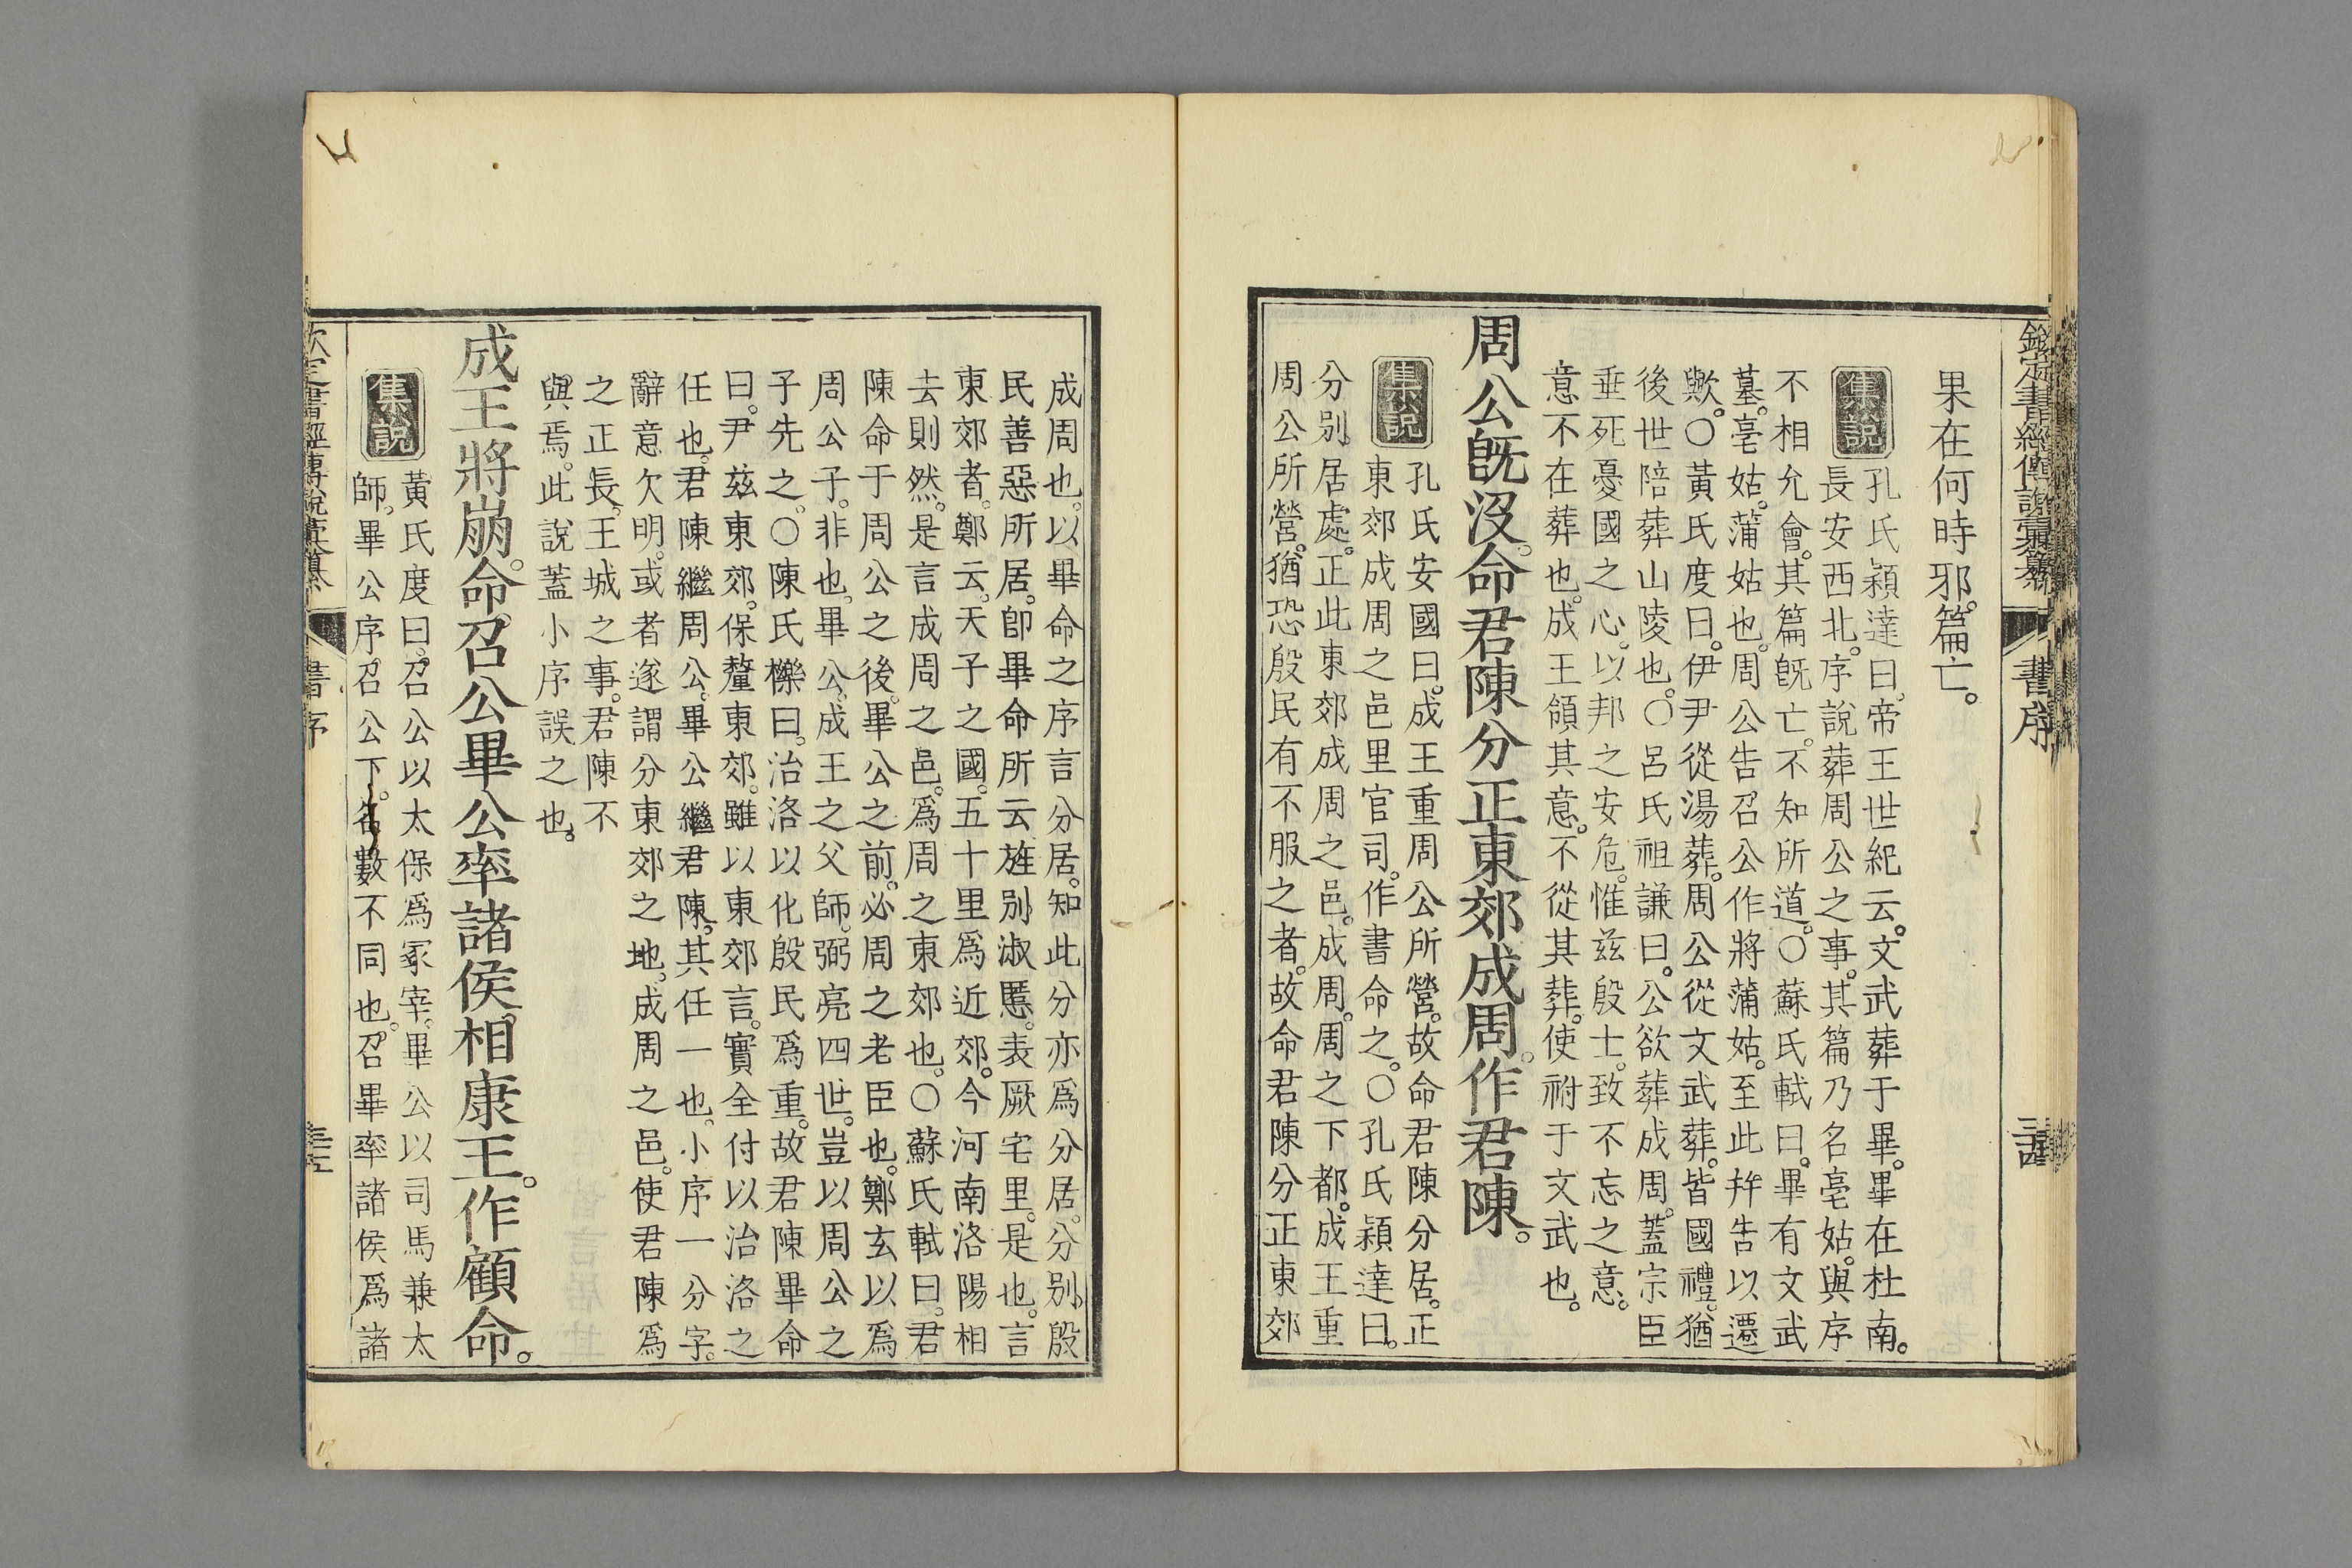 欽定書經傳說彙纂
書序
三四
果在何時邪。篇亡。
集說
孔氏穎達曰。帝王世紀云。文武葬于畢。畢在杜南。
長安西北。序說葬周公之事。其篇乃名亳姑。與序
不相允會。其篇旣亡。不知所道。○蘇氏軾曰。畢有文武
墓。亳姑。蒲姑也。周公告召公作將蒲姑。至此幷告以遷
歟。○黃氏度曰。伊尹從湯葬。周公從文武葬。皆國禮。猶
後世陪葬山陵也。○呂氏祖謙曰。公欲葬成周。蓋宗臣
垂死憂國之心。以邦之安危。惟兹殷士。致不忘之意。
意不在葬也。成王領其意。不從其葬。使祔于文武也。
周公旣沒。命君陳分正東郊成周。作君陳。
集說
孔氏安國曰。成王重周公所營。故命君陳分居。正
東郊成周之邑里官司。作書命之。○孔氏穎達曰。
分别居處。正此東郊成周之邑。成周。周之下都。成王重
周公所營。猶恐殷民有不服之者。故命君陳分正東郊
成周也。以畢命之序言分居。知此分亦爲分居。分别殷
民善惡所居。卽畢命所云旌别淑慝。表厥宅里。是也。言
東郊者。鄭云。天子之國。五十里爲近郊。今河南洛陽相
去則然。是言成周之邑。爲周之東郊也。○蘇氏軾曰。君
陳命于周公之後。畢公之前。必周之老臣也。鄭玄以爲
周公子。非也。畢公。成王之父師。弼亮四世。豈以周公之
子先之。○陳氏櫟曰。治洛以化殷民爲重。故君陳畢命
曰。尹兹東郊。保釐東郊。雖以東郊言。實全付以治洛之
任也。君陳繼周公。畢公繼君陳。其任一也。小序一分字。
辭意欠明。或者遂謂分東郊之地。成周之邑。使君陳爲
之正長。王城之事。君陳不
與焉。此說蓋小序誤之也。
成王將崩。命召公畢公率諸侯。相康王。作顧命。
集說
黃氏度曰。召公以太保爲冢宰。畢公以司馬兼太
師。畢公序召公下。名數不同也。召畢率諸侯爲諸
欽定書經傳說彙纂
書序
三五